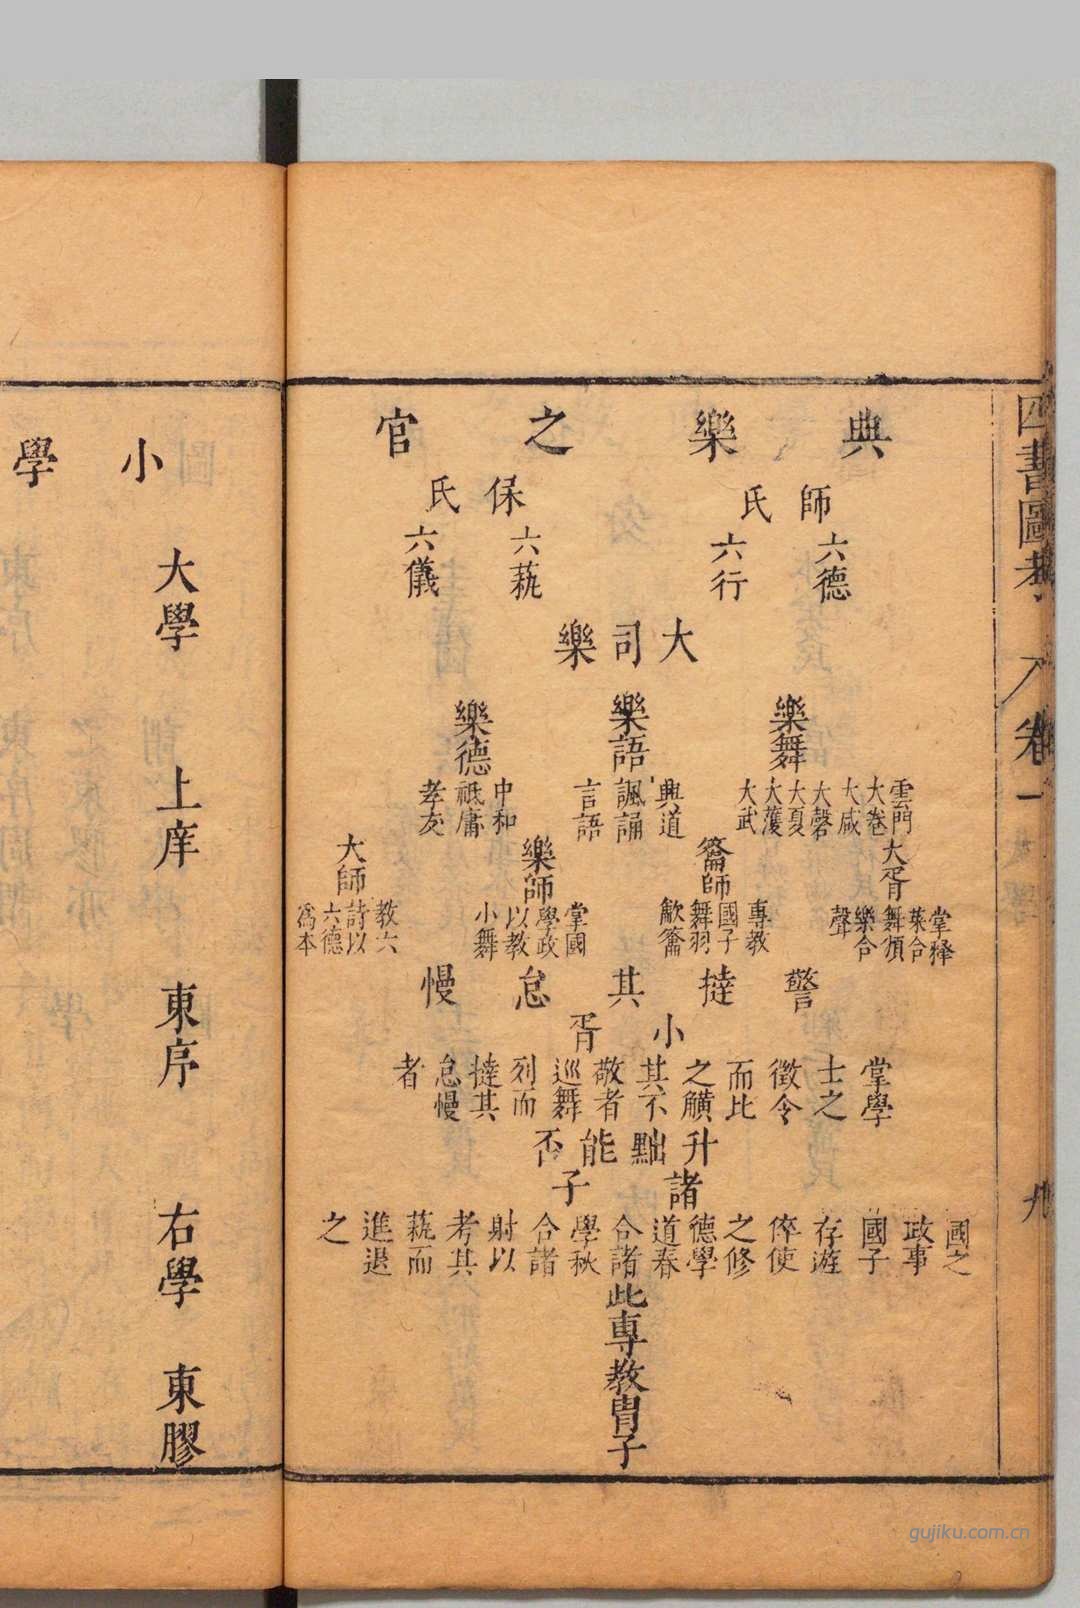 四書圖考 卷一 九
典樂之官
師氏 六德 六行
保氏 六藝 六儀
大司樂
樂舞 雲門 大卷 大咸 大磬 大夏 大濩 大武
樂語 興道 諷誦 言語
樂德 中和 祗庸 孝友
大胥 掌釋菜合舞頒樂合聲
籥師 專教國子舞羽龡籥
樂師 掌國學政以教小舞
大師 教六詩以六德爲本
警撻其怠慢
小胥
掌學士之徵令而比之觵其不敬者巡舞列而撻其怠慢者
升黜能否
諸子
國之政事國子存遊倅使之修德學道春合諸學秋合諸射以考其藝而進退之
此專教胄子
大學 上庠 東序 右學 東膠
小學
gujiku.com.cn